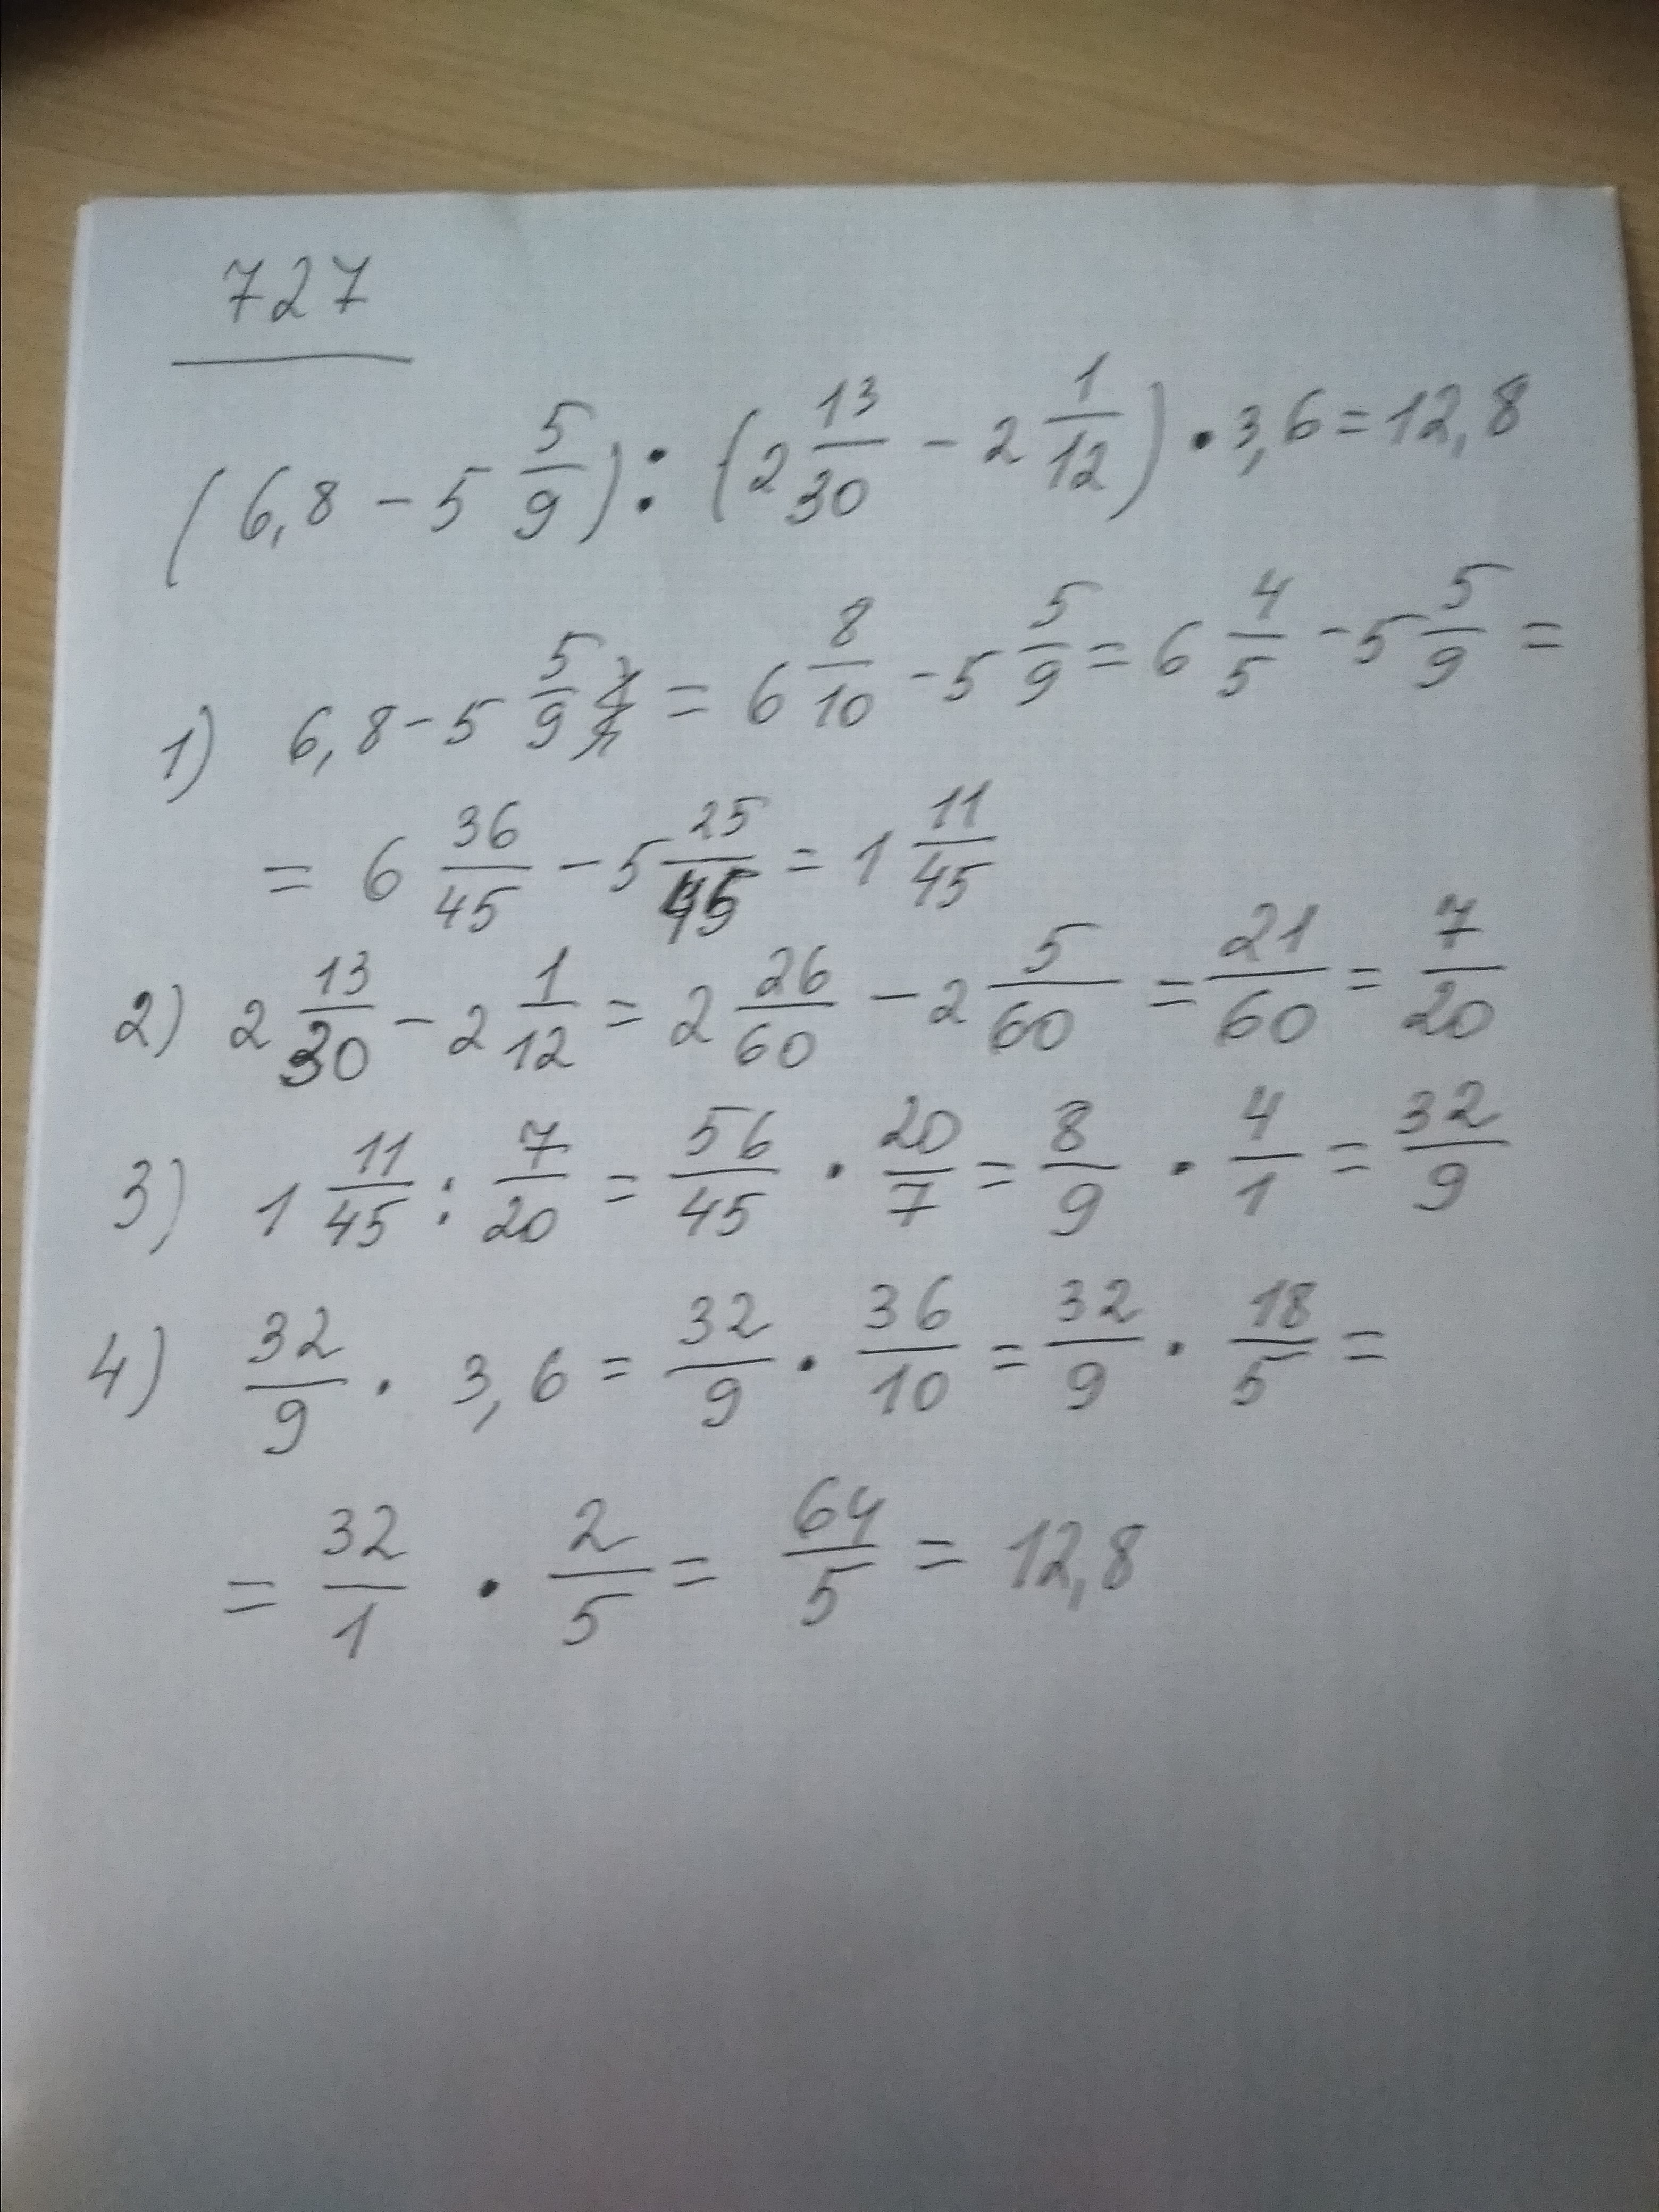 727
(6,8 - 5 5/9) : (2 13/30 - 2 1/12) · 3,6 = 12,8
1) 6,8 - 5 5/9 = 6 8/10 - 5 5/9 = 6 4/5 - 5 5/9 =
= 6 36/45 - 5 25/45 = 1 11/45
2) 2 13/30 - 2 1/12 = 2 26/60 - 2 5/60 = 21/60 = 7/20
3) 1 11/45 : 7/20 = 56/45 · 20/7 = 8/9 · 4/1 = 32/9
4) 32/9 · 3,6 = 32/9 · 36/10 = 32/9 · 18/5 =
= 32/1 · 2/5 = 64/5 = 12,8